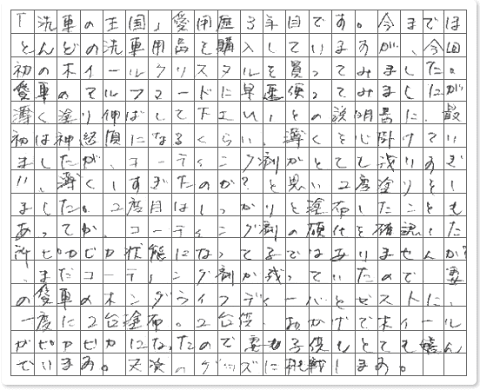 「洗車の王国」愛用歴3年目です。今までほ
とんどの洗車用品を購入していますが、今回
初のホイールクリスタルを買ってみました。
愛車のアルファードに早速使ってみましたが
薄く塗り伸ばして下エい」との説明書に、最
初は神経質になるくらい、薄くを心掛けてい
ましたが、コーティング剤がとても浅いあざ
い、薄くしすぎたのか?と思い2度塗りをし
ました。2度目はしっかりと塗布したことも
あってか、コーティング剤の硬化を確認した
所ピカピカ状態になってるではありませんか?
、まだコーティング剤が残っていたので、妻
の愛車のホンダライフディーバとゼストに、
一度に2台塗布。2台供、おかげでホイール
がピカピカになったので妻も子供もとても嬉ん
でいます。天次のグッズに挑戦します。